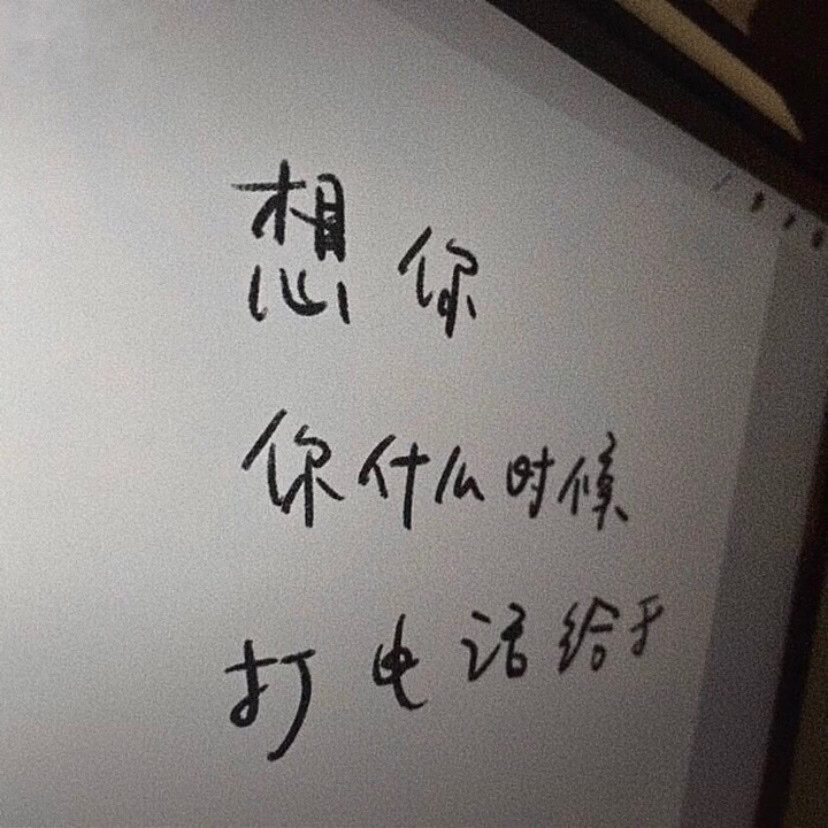 想你
你什么时候
打电话给